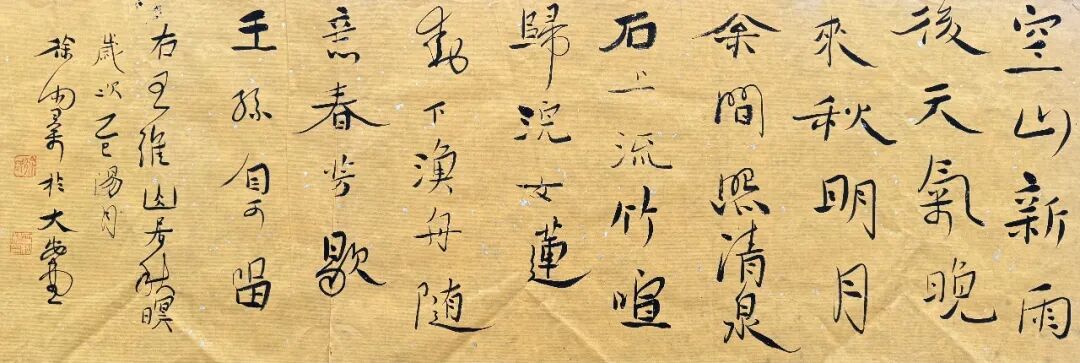 空山新雨
後天氣晚
來秋明月
枀間照清泉
石上流竹喧
歸浣女蓮
動下漁舟随
意春芳歇
王孫自可留
右王維山居秋暝
歲次乙巳陽月
徐於大